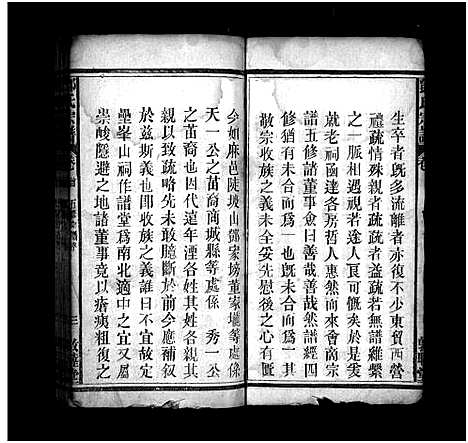 生卒者旣多流離者亦復不少東貿西營
禮疏情殊親者疏疏者益疏若無譜維繫
之一脈相承過視若途人良可慨於是爰
就老祠國達各房哲人長老等來會商宗
譜五修諸董事僉曰善哉善哉然譜經四
修和合尚未合而爲一也旣未合而爲一
敬宗收族之義是以未全先慰後之心
今如麻邑陡坡山鄧家塝董家壠等處係
天一公之苗裔商城縣等處係　秀一公
之苗裔也因代遠年湮各姓其姓各親其
親以致疏略先未敢臆斷於前今應補叙
於玆則收族之義誰曰不宜故定
壘峯山祠作譜堂爲南北適中之宜又屬
崇峻隱避之地諸董事竟以瘡痍粗復之